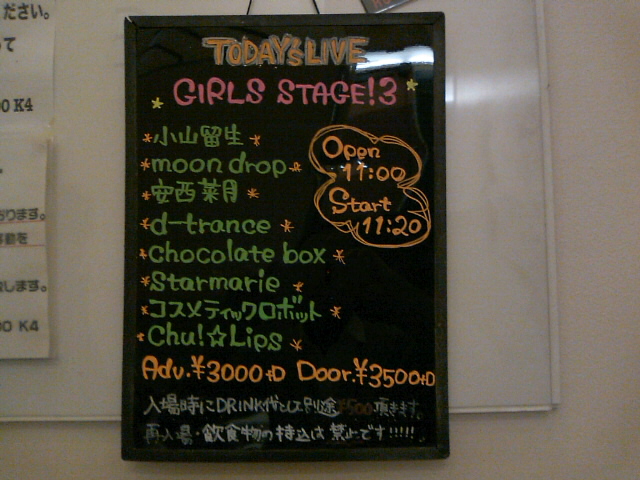 TODAY'S LIVE
GIRLS STAGE!3
小山留生
moon drop
安西菜月
d-trance
chocolate box
Starmarie
コスメティックロボット
Chu!☆Lips
Open
11:00
Start
11:20
Adv.¥3000+D Door.¥3500+D
入場時にDRINK代として別途¥500頂きます。
再入場・飲食物の持込は禁止です!!!!!
ださい。
って
00 K4
おります。
移動を
します。
00 K4